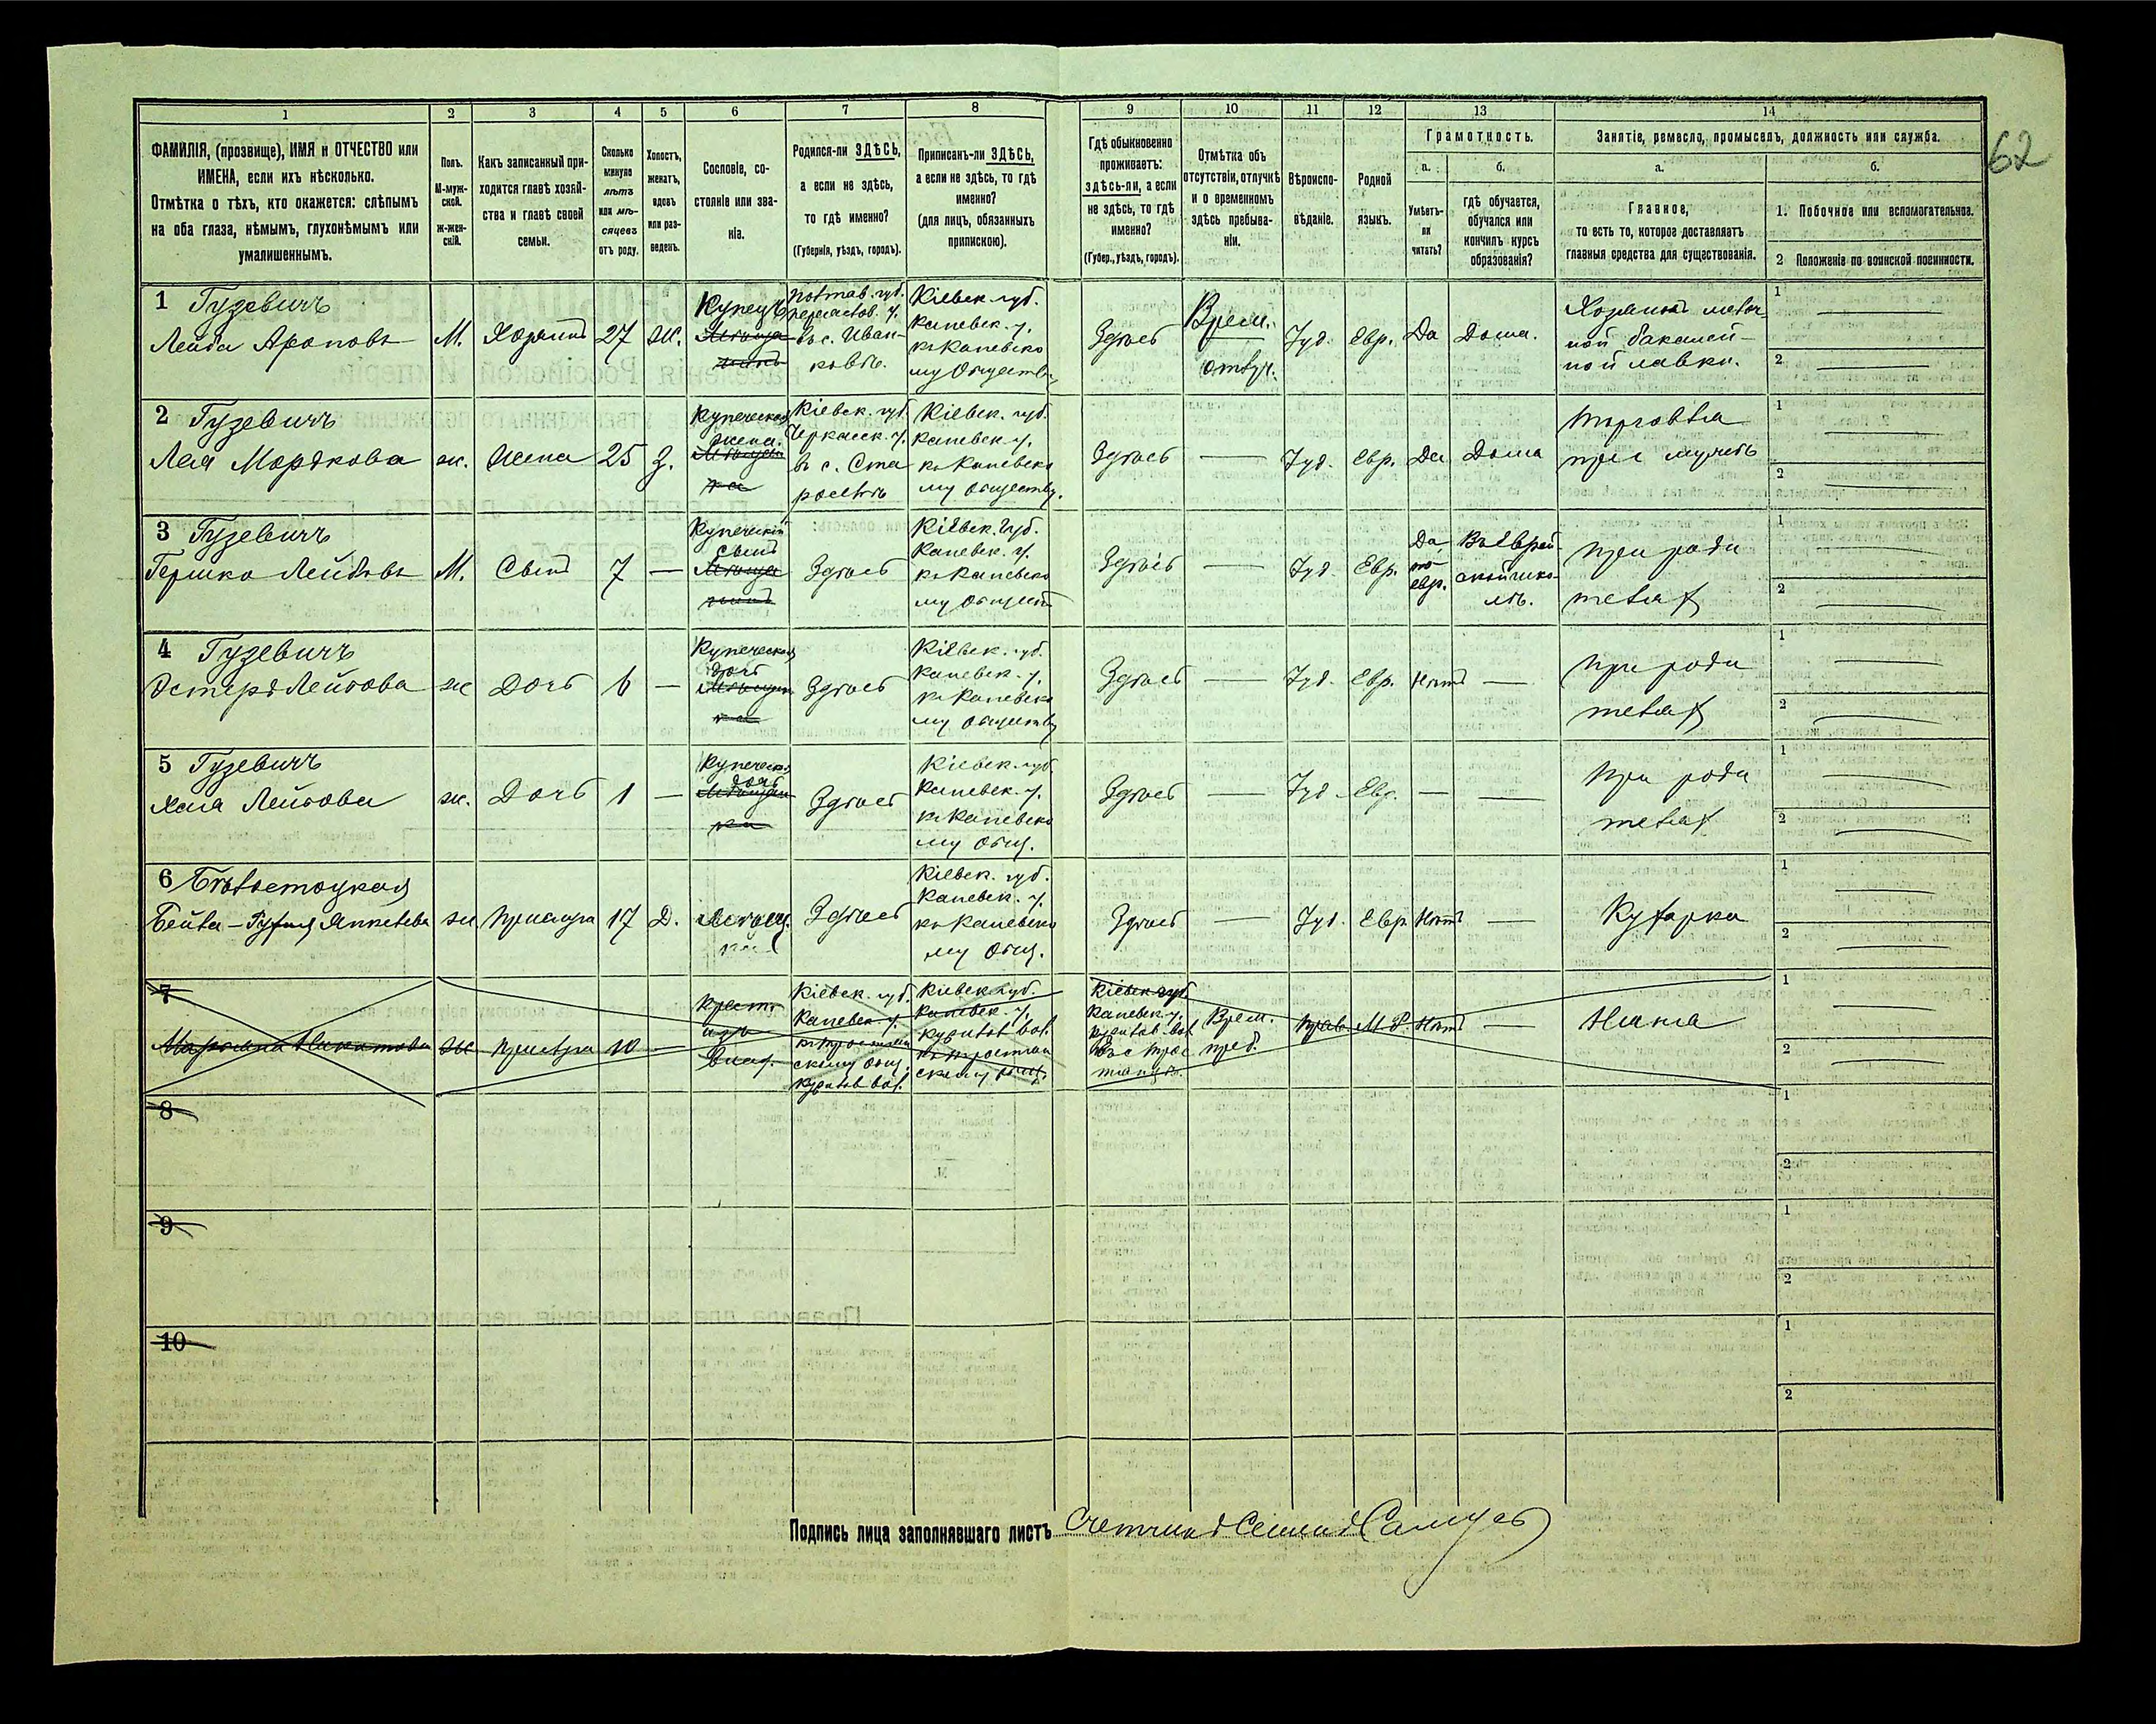 62
1
2
3
4
5
6
7
8
9
10
11
12
13
14
ФАМИЛІЯ, (прозвище), ИМЯ и ОТЧЕСТВО или
ИМЕНА, если ихъ нѣсколько.
Отмѣтка о тѣхъ, кто окажется: слѣпымъ
на оба глаза, нѣмымъ, глухонѣмымъ или
умалишеннымъ.
Полъ.
М-муж-
ской.
ж-жен-
скій.
Какъ записанный при-
ходится главѣ хозяй-
ства и главѣ своей
семьи.
Сколько
минуло
лѣтъ
или мѣ-
сяцевъ
отъ роду.
Холостъ,
женатъ,
вдовъ
или раз-
веденъ.
Сословіе, со-
стояніе или зва-
ніе.
Родился-ли ЗДѢСЬ,
а если не здѣсь,
то гдѣ именно?
(Губернія, уѣздъ, городъ).
Приписанъ-ли ЗДѢСЬ,
а если не здѣсь, то гдѣ
именно?
(для лицъ, обязанныхъ
припискою).
Гдѣ обыкновенно
проживаетъ:
здѣсь-ли, а если
не здѣсь, то гдѣ
именно?
(Губер., уѣздъ, городъ).
Отмѣтка объ
отсутствіи, отлучкѣ
и о временномъ
здѣсь пребыва-
ніи.
Вѣроиспо-
вѣданіе.
Родной
языкъ.
Грамотность.
а.
Умѣетъ-
ли
читать?
б.
гдѣ обучается,
обучался или
кончилъ курсъ
образованія?
Занятіе, ремесло, промыселъ, должность или служба.
а.
Главное,
то есть то, которое доставляетъ
главныя средства для существованія.
б.
1. Побочное или вспомогательное.
2 Положеніе по воинской повинности.
1 Гузевичъ
Лейба Ароновъ
М.
Хозяинъ
27
Ж.
Купецъ
Полтав. губ.
въ с. Иван-
ковѣ.
Кіевск. губ.
Каневск. у.
къ Каневско
му Обществу
Здѣсь
Врем.
отлуч.
Іуд.
Евр.
Да
Дома.
Хозяинъ мелоч
ной бакалей-
ной лавки.
1
2
2 Гузевичъ
Лея Мордкова
ж.
Жена
25
З.
Купеческая
жена.
Кіевск. губ.
Черкасск. у.
въ с. Ста
росельѣ
Кіевск. губ.
Каневск. у.
къ Каневско
му обществу.
Здѣсь
Іуд.
Евр.
Да
Дома
Торговля
при мужѣ
1
2
3 Гузевичъ
Гершко Лейбовъ
М.
Сынъ
7
Купеческій
сынъ
Здѣсь
Кіевск. губ.
Каневск. у.
къ Каневско
му Общест
Здѣсь
Іуд.
Евр.
Да,
по
евр.
Въ еврей-
ской шко-
лѣ.
При роди
теляхъ
1
2
4 Гузевичъ
Эстеръ Лейбова
ж
Дочь
6
Купеческая
дочь
Здѣсь
Кіевск. губ.
Каневск. у.
къ Каневско
му обществу
Здѣсь
Іуд.
Евр.
Нѣтъ
При роди
теляхъ
1
2
5 Гузевичъ
Хая Лейбова
ж.
Дочь
1
Купеческ.
дочь
Здѣсь
Кіевск. губ.
Каневск. у.
къ Каневско
му общ.
Здѣсь
Іуд.
Евр.
При роди
теляхъ
1
2
6 Бѣлостоцкая
ж
Прислуга
17
Д.
Мѣщан.
ка
Здѣсь
Кіевск. губ.
Каневск. у.
къ Каневско
му общ.
Здѣсь
Іуд.
Евр.
Нѣтъ
Кухарка
1
2
7
ж
прислуга
10
Крест.
изъ
влад.
Кіевск. губ.
Каневск. у.
Кіевск. губ.
Каневск. у.
Кіевск. губ.
Каневск. у.
Врем.
преб.
Прав.
М. Р.
Нѣтъ
Няня
1
2
8
1
2
9
1
2
10
1
2
Подпись лица заполнявшаго листъ Счетчикъ